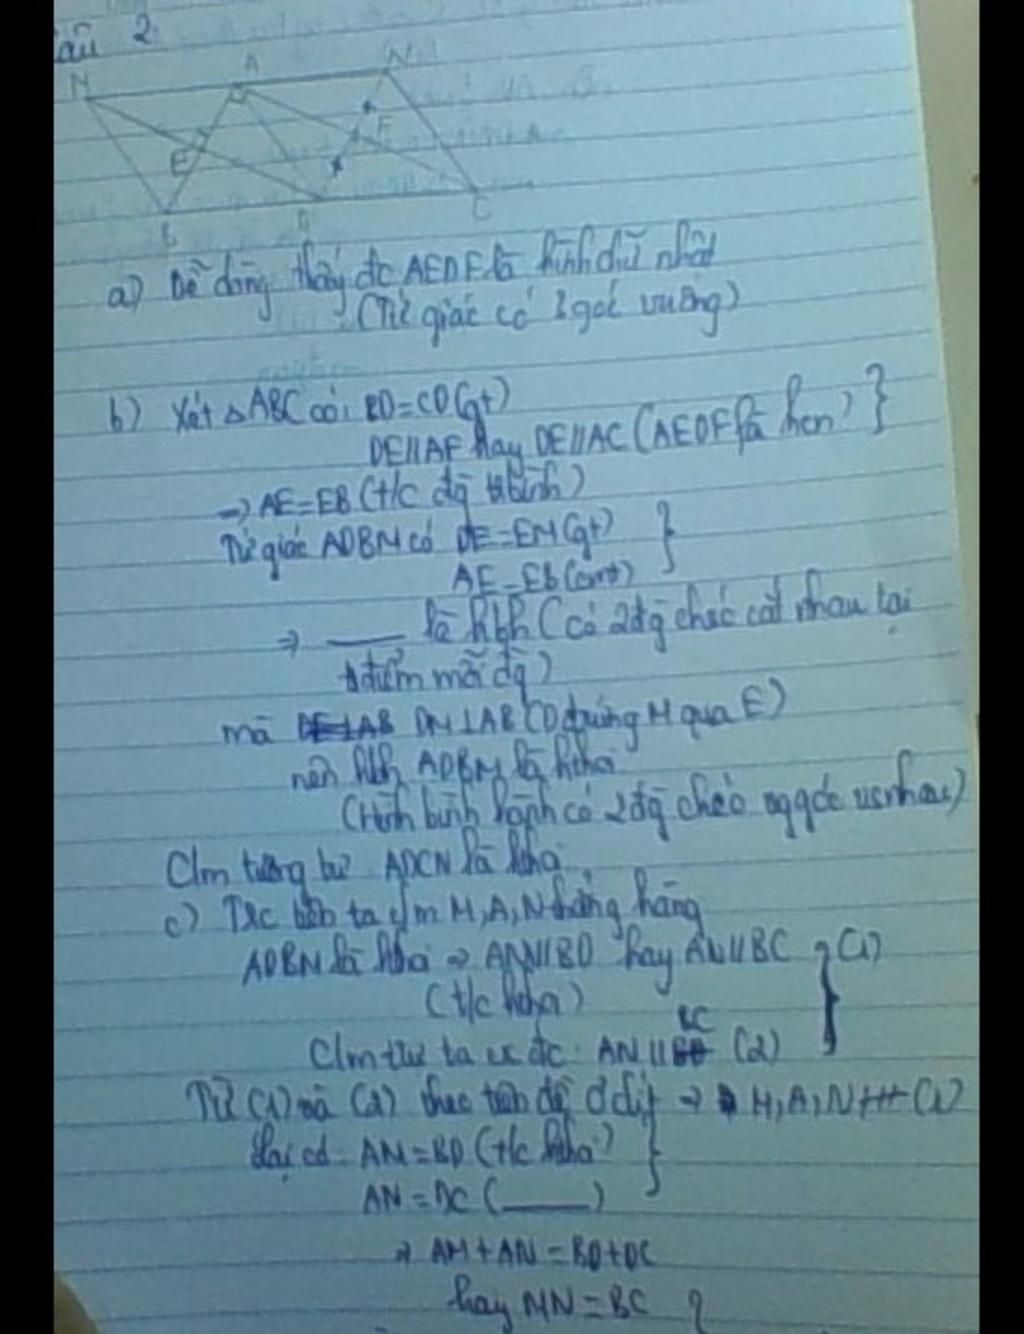 Câu 2
M A N
E F
B D C
a) Dễ dàng thấy đc AEDF là hình chữ nhật
(Tứ giác có 3 góc vuông)
b) Xét △ABC có: BD=CD(gt)
DE//AF hay DE//AC (AEDF là hcn) }
→ AE=EB (t/c đg tbình)
Tứ giác ADBM có DE=EM(gt) }
AE=EB(cmt)
⇒ ____ là hbh (có 2đg chéo cắt nhau tại
tđiểm mỗi đg)
mà DM⊥AB (D đxứng M qua E)
nên hbh ADBM là hthoi
(Hình bình hành có 2đg chéo vggóc vs nhau)
Cm tương tự ADCN là hthoi
c) Trc hết ta c/m M,A,N thẳng hàng
ADBM là hthoi ⇒ AM//BD hay AM//BC } (1)
(t/c hthoi)
Cm ttự ta cx đc: AN//BC (2)
Từ (1) và (2) theo tiên đề Ơclit ⇒ M,A,N tH (1)
Lại có: AM=BD (t/c hthoi) }
AN=DC (____)
⇒ AM+AN=BD+DC
hay MN=BC }